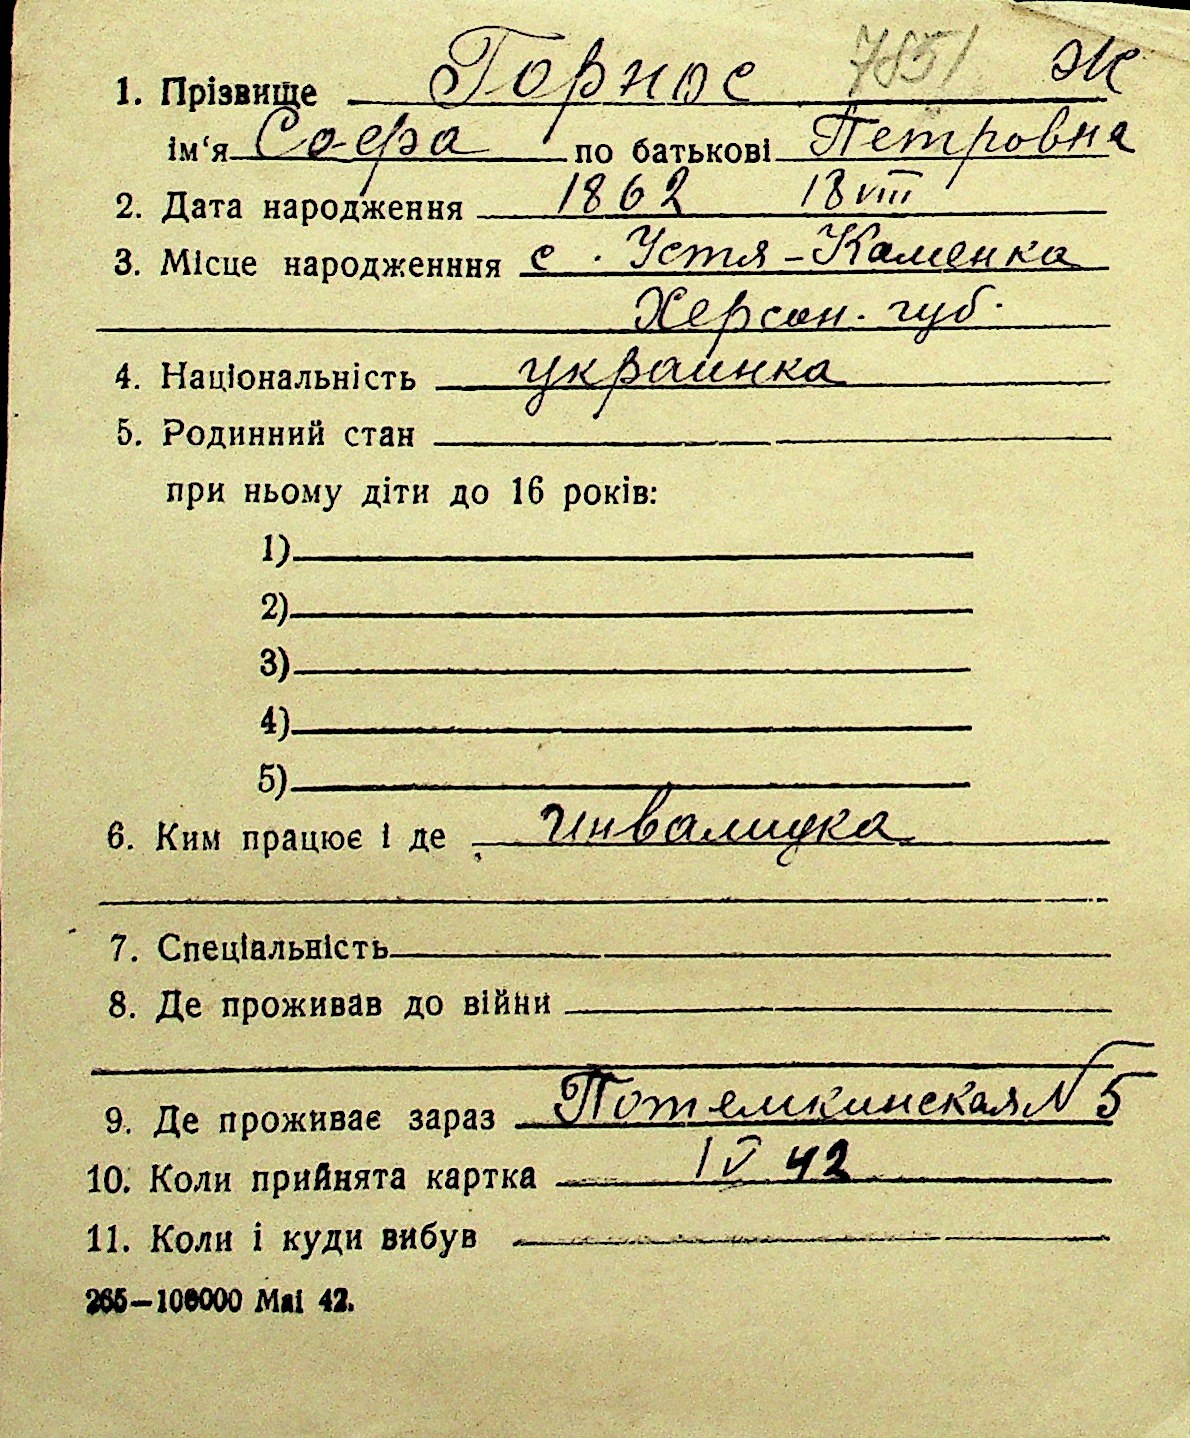 1. Прізвище Горнос 7851 Ж
ім‘я Софа по батькові Петровна
2. Дата народження 1862 18 VIII
3. Місце народженння с. Устя-Каменка
Херсон. губ.
4. Національність украинка
5. Родинний стан
при ньому діти до 16 років:
1)
2)
3)
4)
5)
6. Ким працює і де инвалидка
7. Спеціальність
8. Де проживав до війни
9. Де проживає зараз Потемкинская N 5
10. Коли прийнята картка IV 42
11. Коли і куди вибув
265—100000 Маі 42.